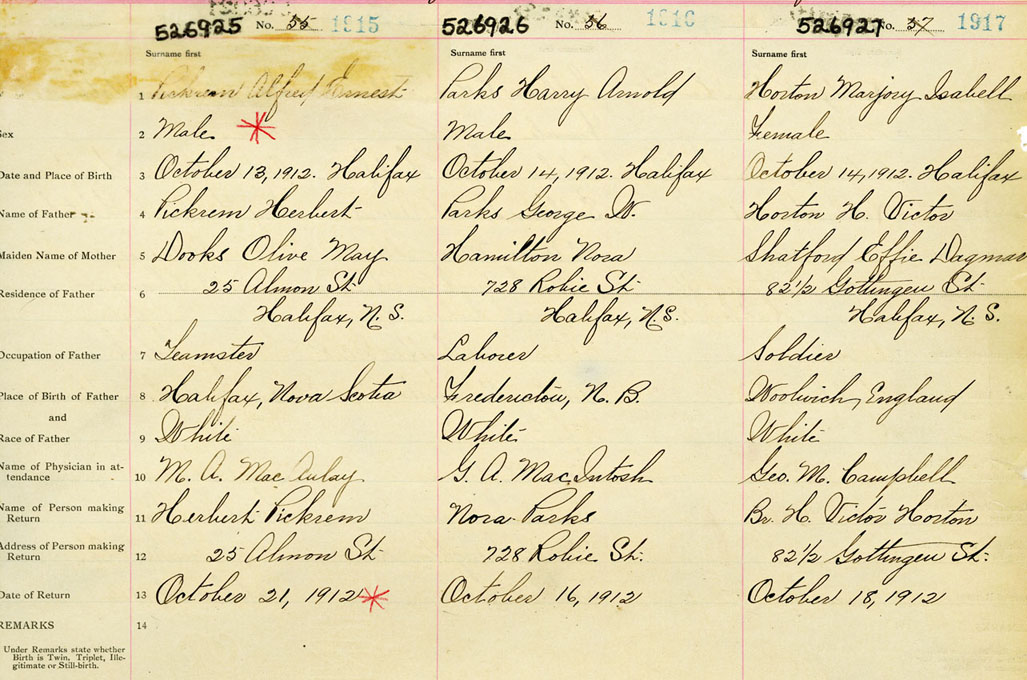 526925 No. 55 1915 526926 No. 56 1916 526927 No. 57 1917
Surname first Surname first Surname first
1 Pickrem Alfred Ernest Parks Harry Arnold Horton Marjory Isabell
Sex 2 Male Male Female
Date and Place of Birth 3 October 13, 1912. Halifax October 14, 1912. Halifax October 14, 1912. Halifax
Name of Father 4 Pickrem Herbert Parks George W. Horton H. Victor
Maiden Name of Mother 5 Dooks Olive May Hamilton Nora Shatford Effie Dagmar
Residence of Father 6 25 Almon St. 728 Robie St. 82 1/2 Gottingen St.
Halifax, N.S. Halifax, N.S. Halifax, N.S.
Occupation of Father 7 Teamster Laborer Soldier
Place of Birth of Father 8 Halifax, Nova Scotia Fredericton, N.B. Woolwich, England
and
Race of Father 9 White White White
Name of Physician in at-
tendance 10 M. A. MacAulay G. A. MacIntosh Geo. M. Campbell
Name of Person making
Return 11 Herbert Pickrem Nora Parks Br. H. Victor Horton
Address of Person making
Return 12 25 Almon St. 728 Robie St. 82 1/2 Gottingen St.
Date of Return 13 October 21, 1912 October 16, 1912 October 18, 1912
REMARKS 14
Under Remarks state whether
Birth is Twin, Triplet, Ille-
gitimate or Still-birth.